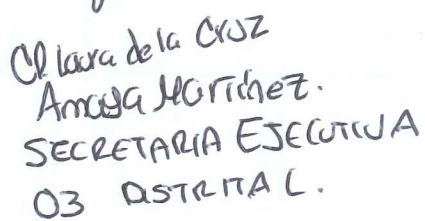 CP Laura de la Cruz
Amaya Martinez.
SECRETARIA EJECUTIVA
03 DISTRITAL.